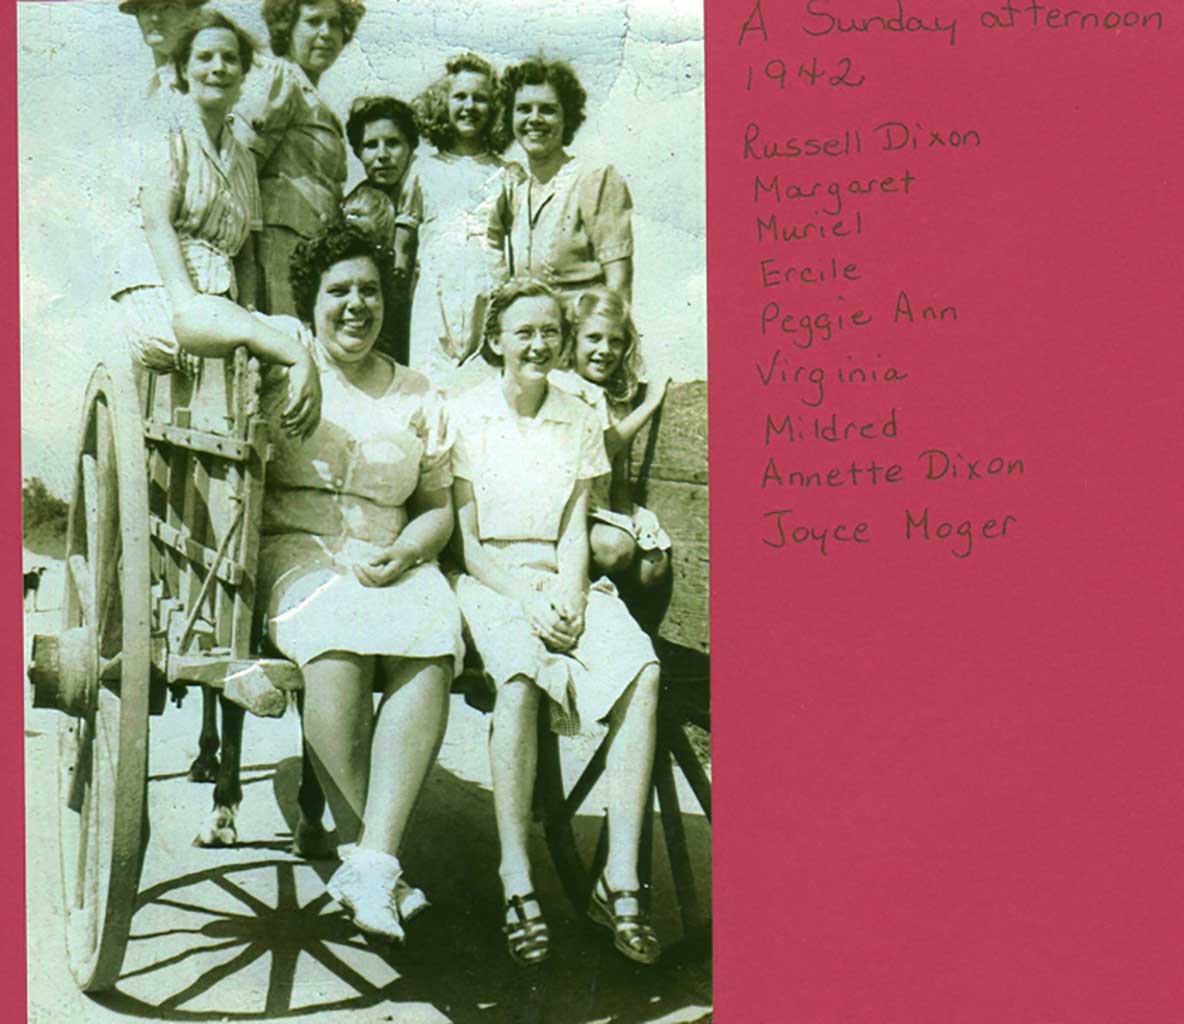 A Sunday afternoon
1942
Russell Dixon
Margaret
Muriel
Ercile
Peggie Ann
Virginia
Mildred
Annette Dixon
Joyce Moger